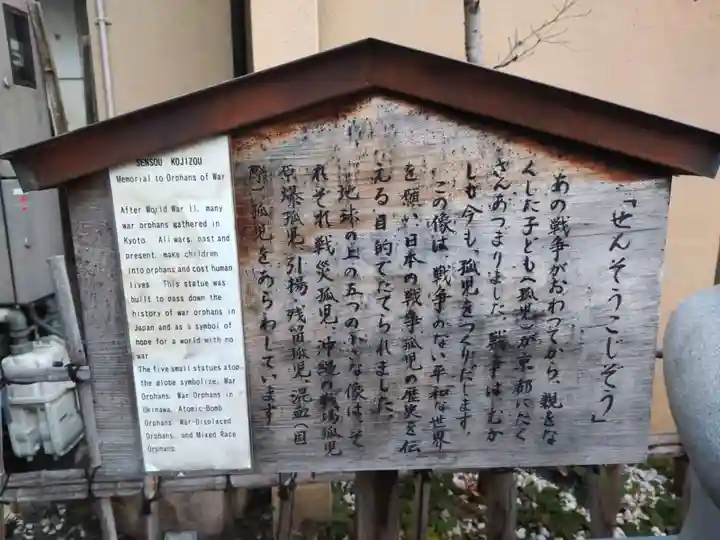 「せんそうこじぞう」
あの戦争がおわってから、親をな
くした子ども(孤児)が京都にたく
さんあつまりました。戦争は、むか
しも今も、孤児をつくりだします。
この像は、戦争のない平和な世界
を願い、日本の戦争孤児の歴史を伝
える目的でたてられました。
地球の上の五つの小さな像は、そ
れぞれ戦災孤児、沖縄の戦場孤児、
原爆孤児、引揚・残留孤児、混血(国
際)孤児をあらわしています
SENSOU KOJIZOU
Memorial to Orphans of War
After World War II, many
war orphans gathered in
Kyoto. All wars, past and
present, make children
into orphans and cost human
lives. This statue was
built to pass down the
history of war orphans in
Japan and as a symbol of
hope for a world with no
war
The five small statues atop
the globe symbolize, War
Orphans, War Orphans in
Okinawa, Atomic-Bomb
Orphans, War-Displaced
Orphans, and Mixed Race
Orphans